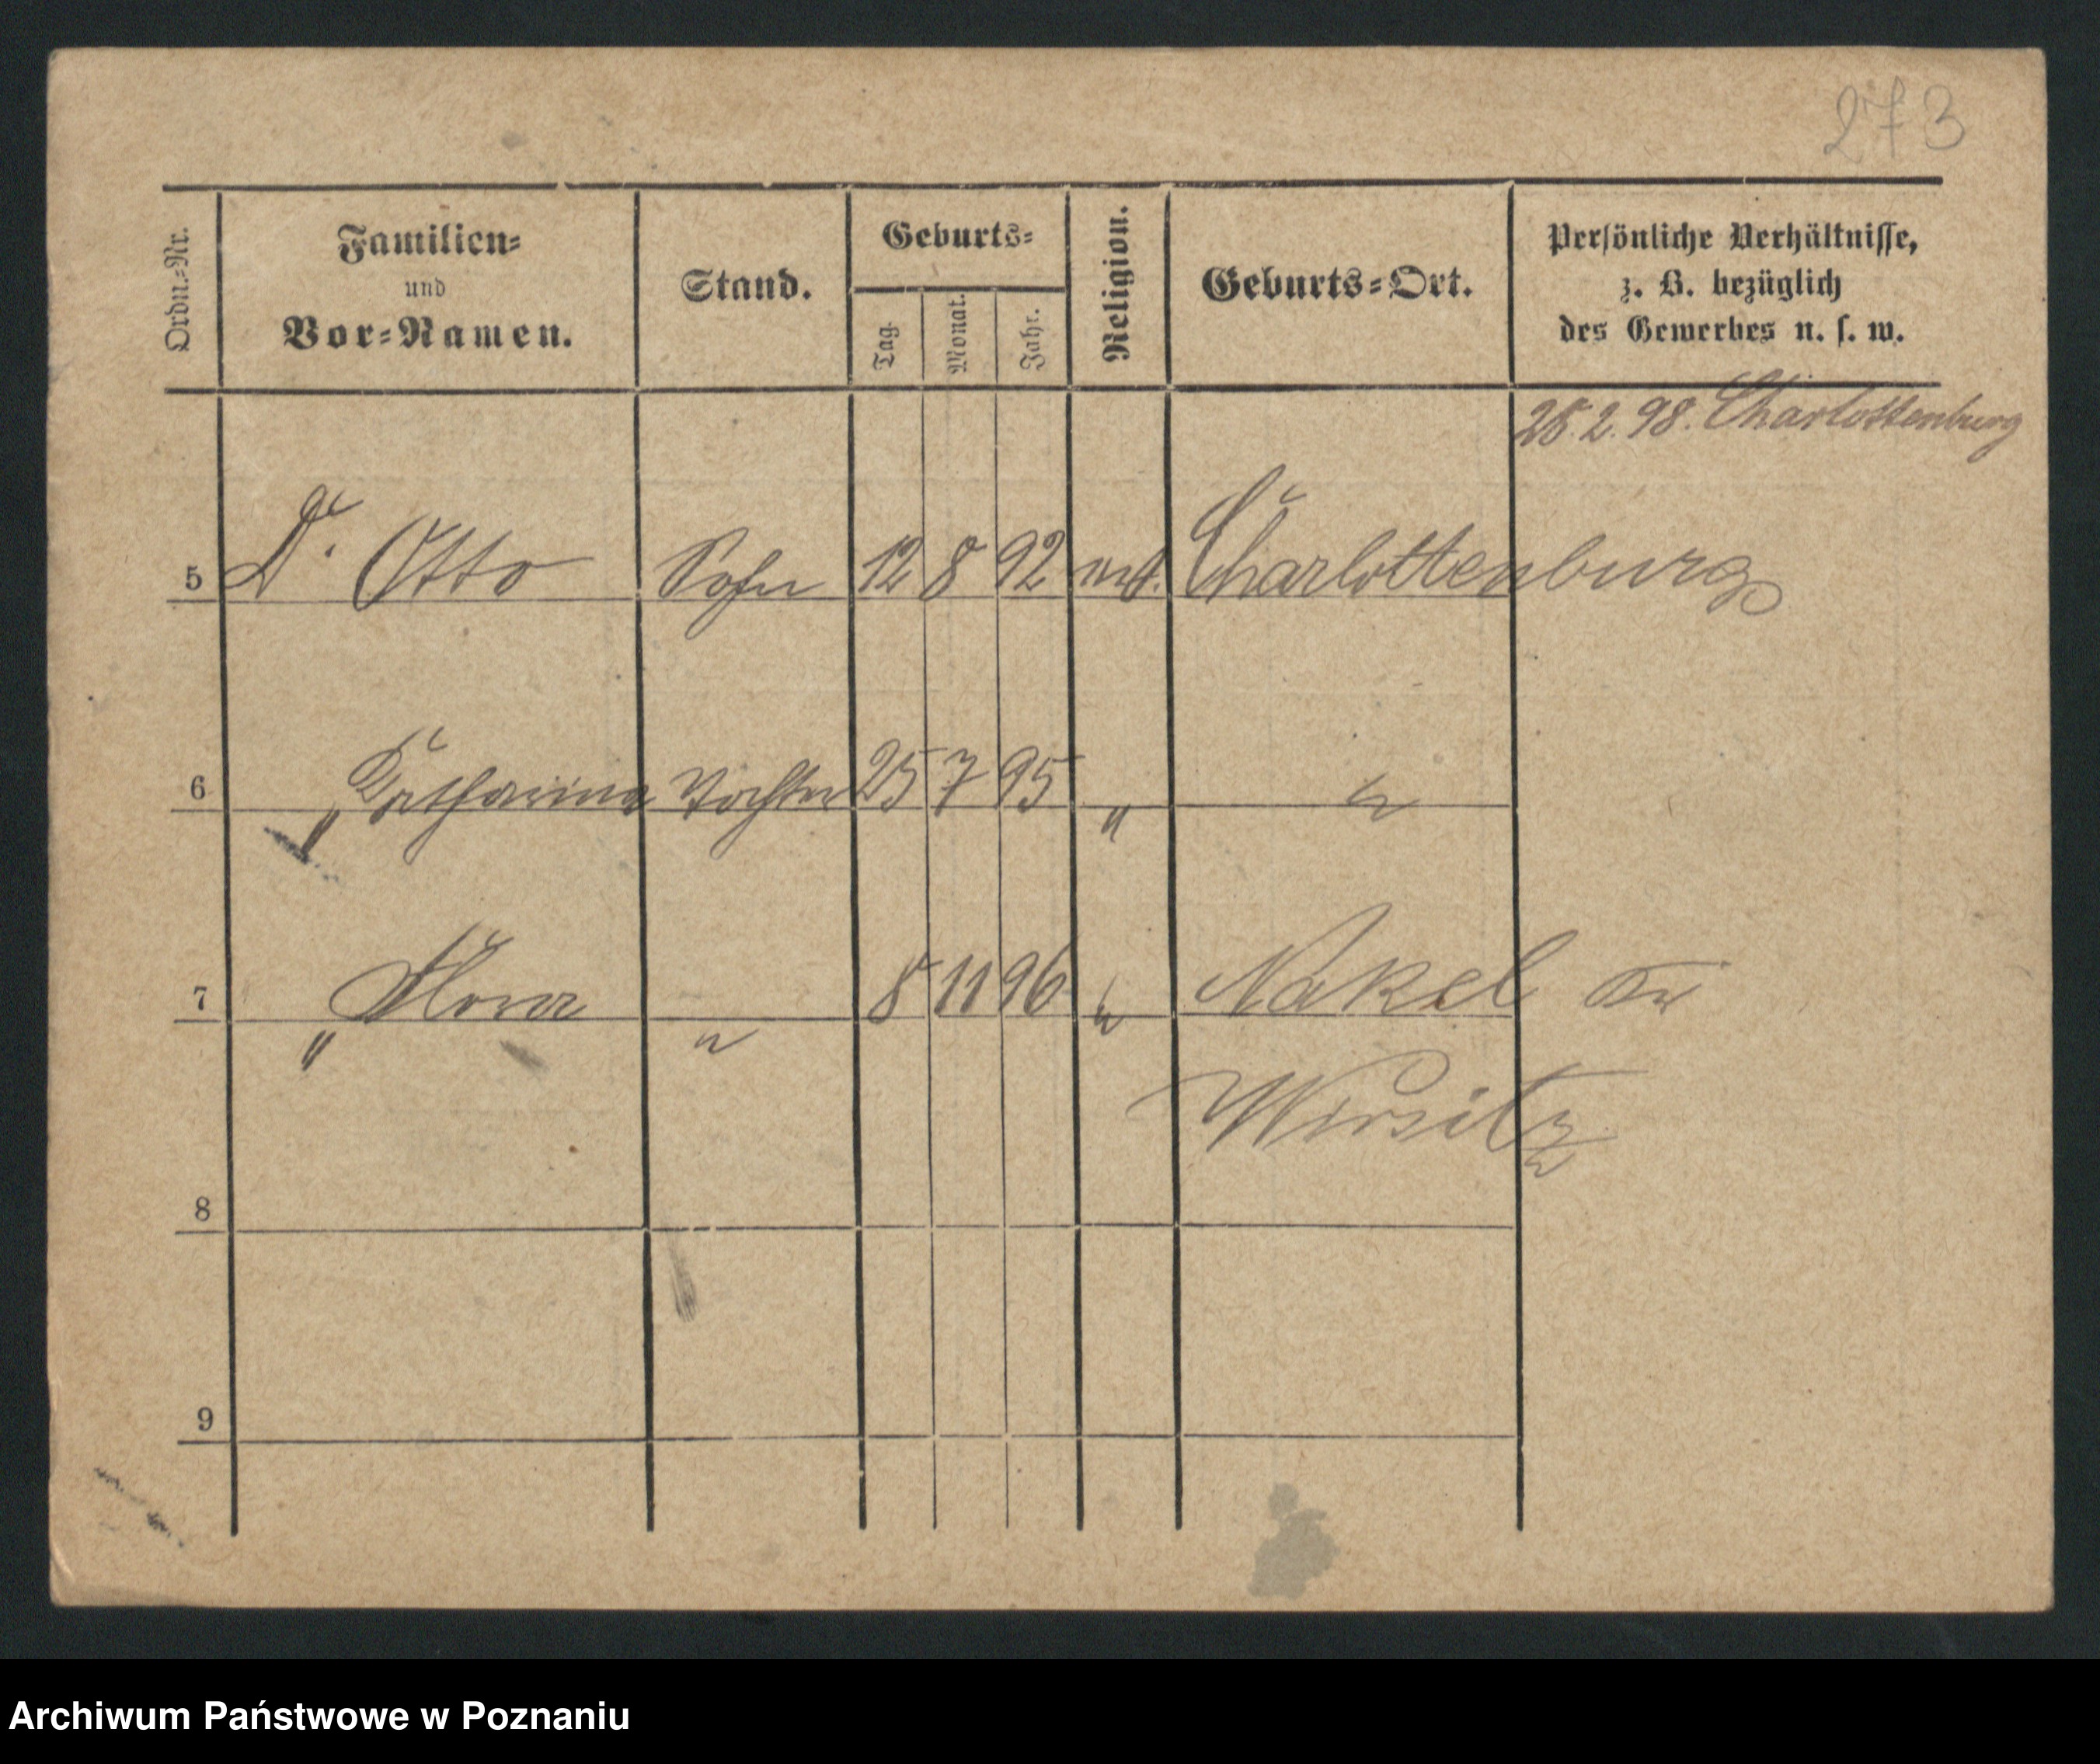 273
Ordn.-Nr.
Familien-
und
Vor-Namen.
Stand.
Geburts-
Tag. Monat. Jahr.
Religion.
Geburts-Ort.
Persönliche Verhältnisse,
z. B. bezüglich
des Gewerbes u. s. w.
2.98. Charlottenburg
5 D. Otto Sohn 12 8 92 Charlottenburg
6 " Katharina Tochter 25 7 95 " "
7 " Flora " 8 11 96 " Nakel Kr
Wirsitz
8
9
Archiwum Państwowe w Poznaniu